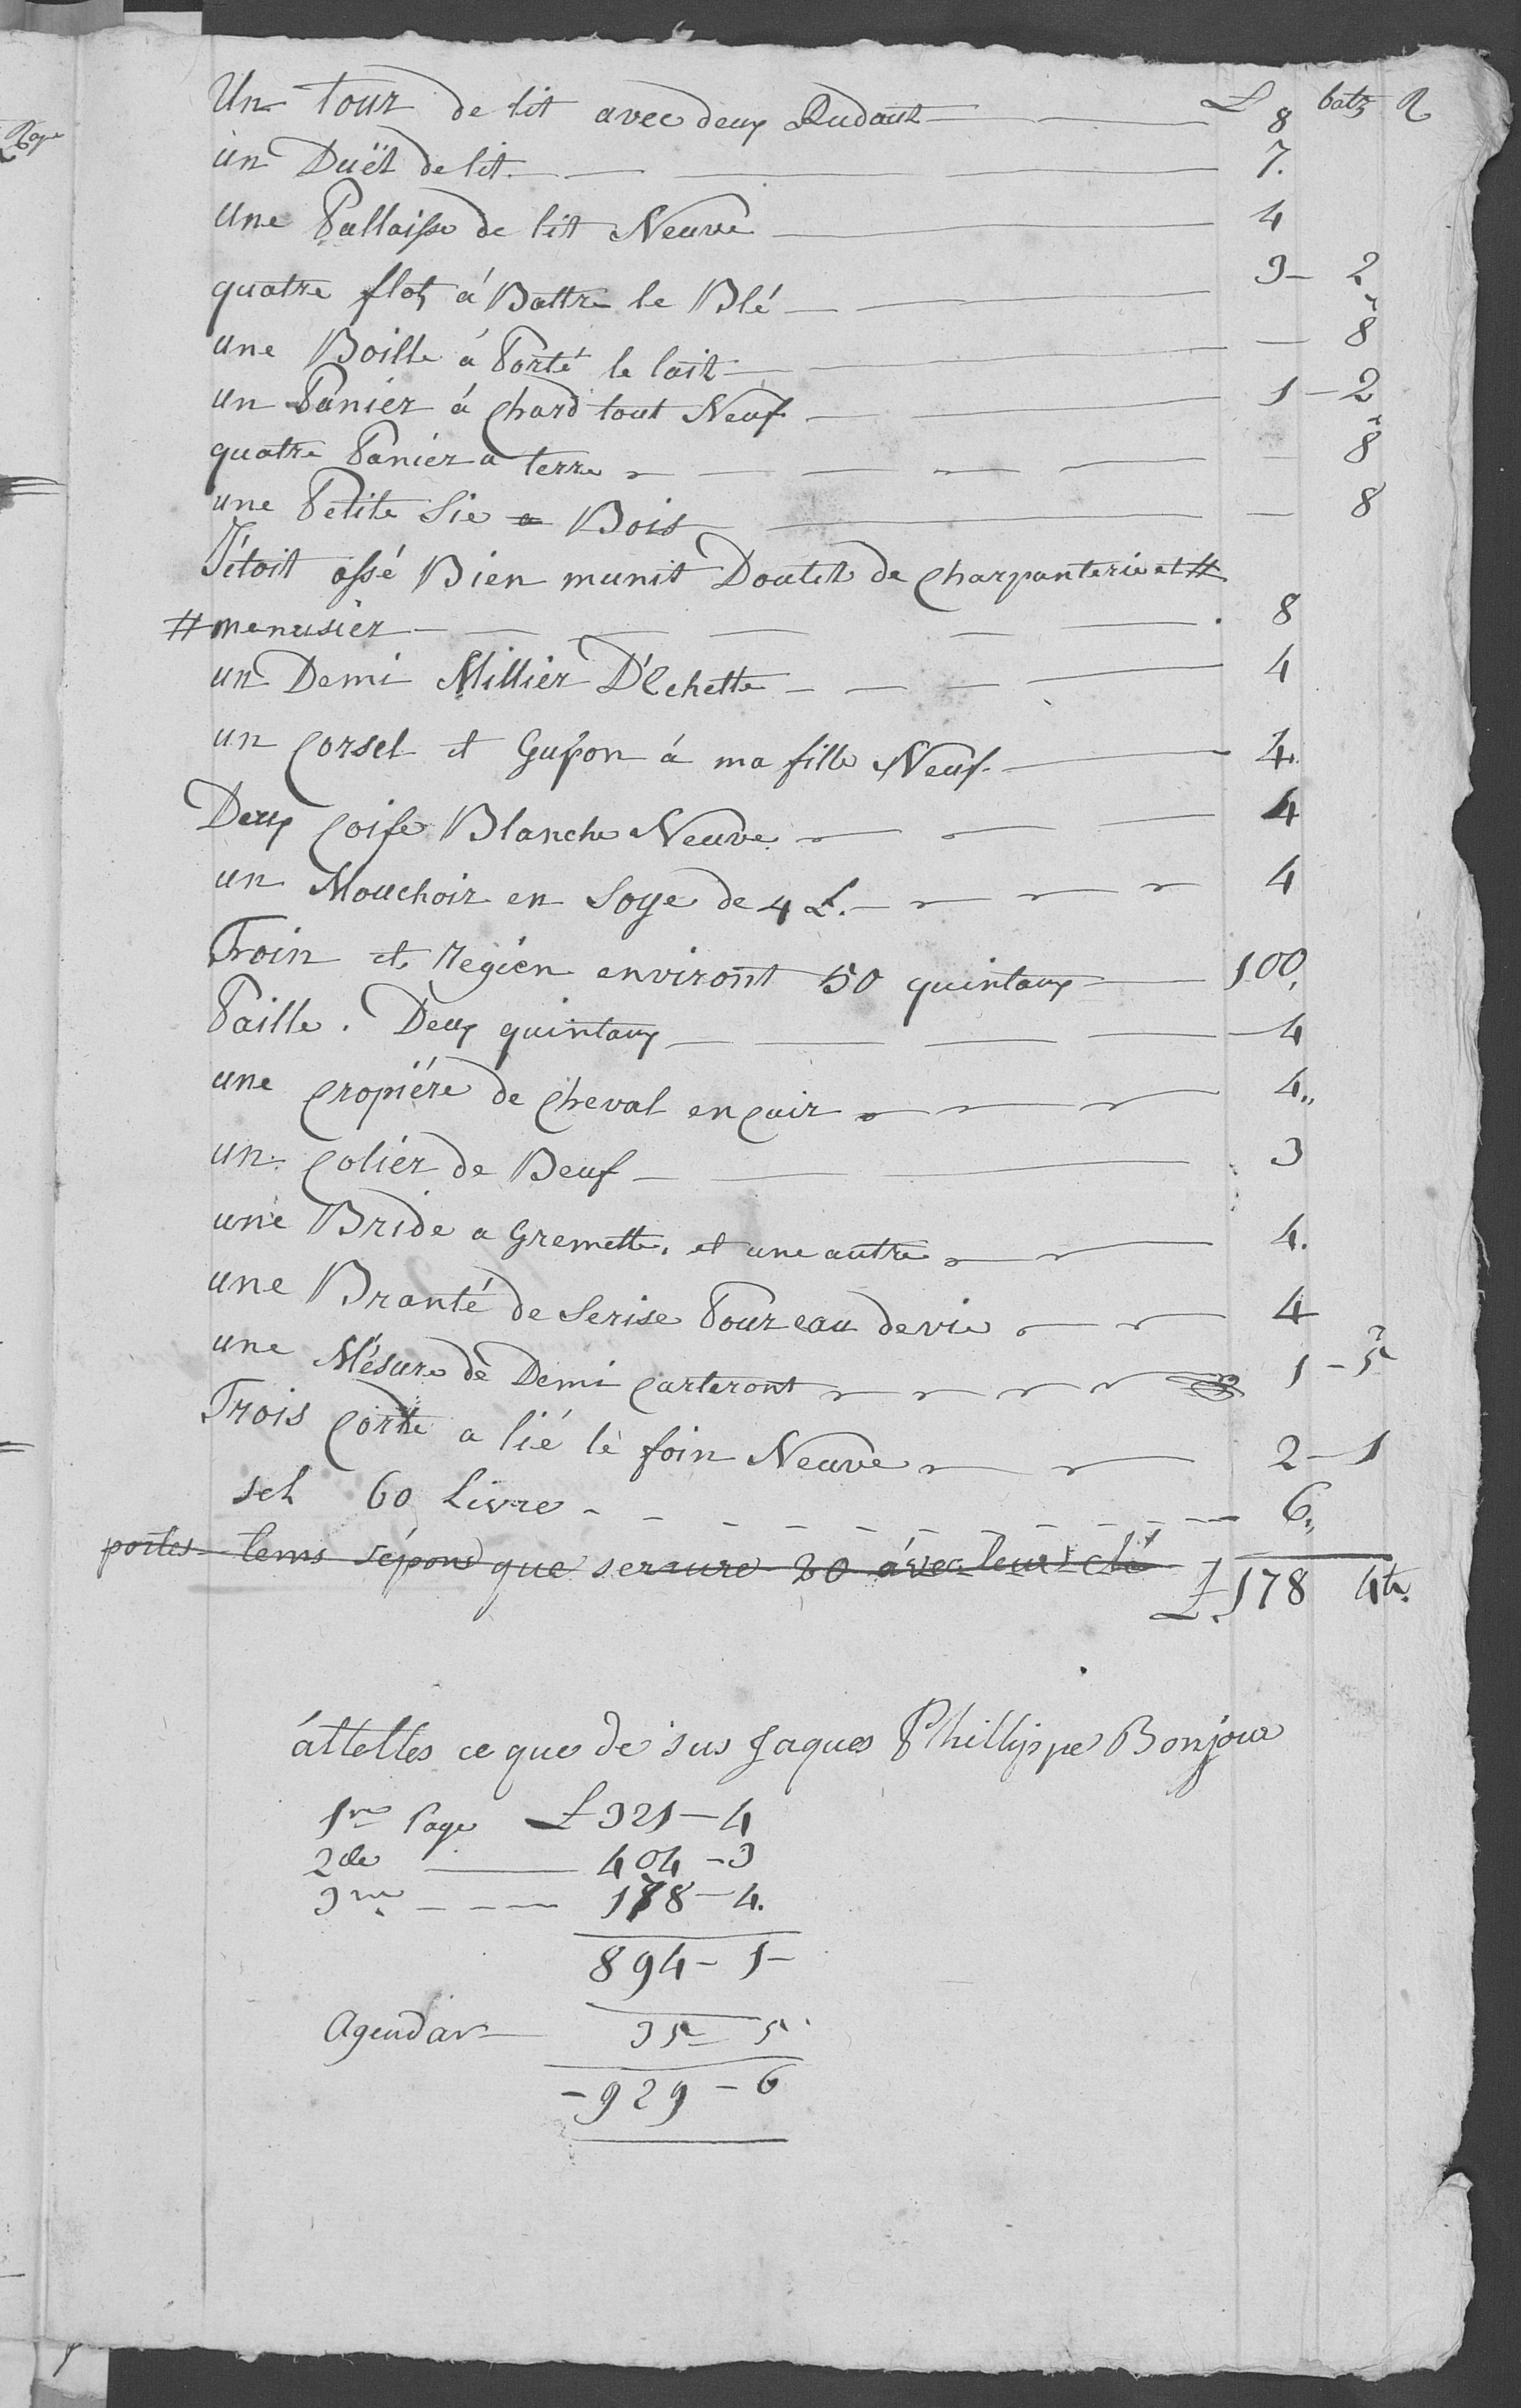 £ batz R
Un tour de lit avec deux Ridaut 8
un Duët de lit 7.
une Pallaisse de lit Neuve 4
quatre flot à Battre le Blé 3 – 2
une Boille á Porté le lait – 8
un Paniér á Chard tout Neuf 1 – 2
quatre Paniér a terre – 8
une Petite Sie a Bois – 8
J'étoit assé Bien munit Doutet de Charpanterie et #
# menusiér 8
un Demi Millier D'Echette 4
un Corset et Gupon á ma fille Neuf 4.
Deux Coife Blanche Neuve 4
un Mouchoir en Soye de 4 £. 4
Froin et Regién environt 50 quintaux 100.
Paille. Deux quintaux 4
une Cropiére de Cheval en Cuir 4"
un Coliér de Beuf 3
une Bride a Gremette, et une autre 4.
une Branté de Serise Pour eau de vie 4
une Mésure de Demi Carteront 1 – 5
Trois Corde a lié le foin Neuve 2 – 1
sel 60 Livre 6"
portes que serrure 20 avec leur clé
£. 178 4
áttettes ce que de sus Jaques Phillippe Bonjour
1re Page £ 321 – 4
2de 404 – 3
3me 178 – 4.
894 – 1 –
35 – 5
– 929 – 6